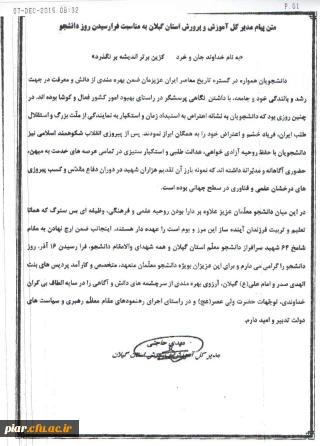 07-DEC-2015 08:32
P.01
متن پیام مدیر کل آموزش و پرورش استان گیلان به مناسبت فرارسیدن روز دانشجو
«به نام خداوند جان و خرد کزین برتر اندیشه بر نگذرد»
دانشجویان همواره در گستره تاریخ معاصر ایران عزیزمان ضمن بهره مندی از دانش و معرفت در جهت
رشد و بالندگی خود و جامعه، با داشتن نگاهی پرسشگر در راستای بهبود امور کشور فعال و کوشا بوده اند. در
چنین روزی بود که دانشجویان به نشانه اعتراض به استبداد زمان و استکبار به نمایندگی از ملت بزرگ و استقلال
طلب ایران، فریاد خشم و اعتراض خود را به همگان ابراز نمودند. پس از پیروزی انقلاب شکوهمند اسلامی نیز
دانشجویان با حفظ روحیه آزادی خواهی، عدالت طلبی و استکبار ستیزی در تمامی عرصه های خدمت به میهن،
حضوری آگاهانه و مدبرانه داشته اند که نمونه بارز آن تقدیم هزاران شهید در دوران دفاع مقدس و کسب پیروزی
های درخشان علمی و فناوری در سطح جهانی بوده است.
در این میان دانشجو معلمان عزیز علاوه بر دارا بودن روحیه علمی و فرهنگی، وظیفه ای بس سترگ که همانا
تعلیم و تربیت فرزندان آینده ساز این مرز و بوم است را عهده دار هستند. اینجانب ضمن ارج نهادن به مقام
شامخ ۶۴ شهید سرافراز دانشجو معلم استان گیلان و همه شهدای والامقام دانشجو، فرا رسیدن ۱۶ آذر، روز
دانشجو را گرامی می دارم و برای این عزیزان بویژه دانشجو معلمان متعهد، متخصص و کارآمد پردیس های بنت
الهدی صدر و امام علی(ع) گیلان، آرزوی بهره مندی از سرچشمه های دانش و آگاهی را در سایه الطاف بی کران
خداوندی، توجهات حضرت ولی عصر(عج) و در راستای اجرای رهنمودهای مقام معظم رهبری و سیاست های
دولت تدبیر و امید دارم.
مهدی حاجتی
مدیر کل آموزش و پرورش استان گیلان
piar.cfu.ac.ir